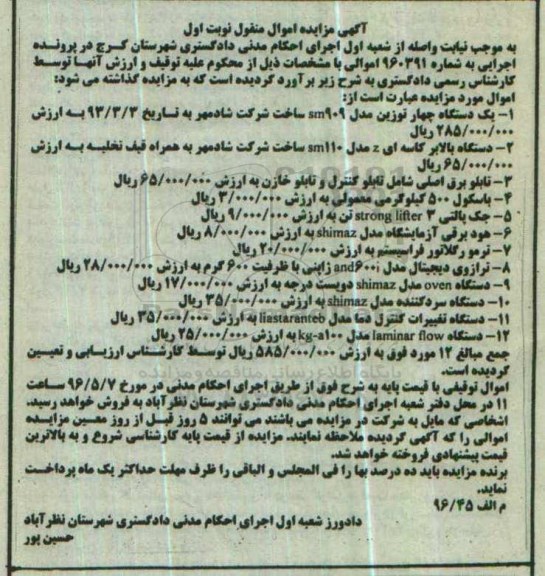 آگهی مزایده اموال منقول نوبت اول
به موجب نیابت واصله از شعبه اول اجرای احکام مدنی دادگستری شهرستان کرج در پرونده
اجرایی به شماره ۹۶۰۳۹۱ اموالی با مشخصات ذیل از محکوم علیه توقیف و ارزش آنها توسط
کارشناس رسمی دادگستری به شرح زیر برآورد گردیده است که به مزایده گذاشته می شود:
اموال مورد مزایده عبارت است از:
۱- یک دستگاه چهار توزین مدل sm۹۰۹ ساخت شرکت شادمهر به تاریخ ۹۳/۳/۳ به ارزش
۲۸۵/۰۰۰/۰۰۰ ریال
۲- دستگاه بالابر کاسه ای z مدل sm۱۱۰ ساخت شرکت شادمهر به همراه قیف تخلیه به ارزش
۶۵/۰۰۰/۰۰۰ ریال
۳- تابلو برق اصلی شامل تابلو کنترل و تابلو خازن به ارزش ۶۵/۰۰۰/۰۰۰ ریال
۴- باسکول ۵۰۰ کیلوگرمی معمولی به ارزش ۳/۰۰۰/۰۰۰ ریال
۵- جک پالتی strong lifter ۳ تن به ارزش ۹/۰۰۰/۰۰۰ ریال
۶- هود برقی آزمایشگاه مدل shimaz به ارزش ۸/۰۰۰/۰۰۰ ریال
۷- ترمو رگلاتور فراسیستم به ارزش ۲۰/۰۰۰/۰۰۰ ریال
۸- ترازوی دیجیتال مدل and۶۰۰i ژاپنی با ظرفیت ۶۰۰ گرم به ارزش ۲۸/۰۰۰/۰۰۰ ریال
۹- دستگاه oven مدل shimaz دویست درجه به ارزش ۱۷/۰۰۰/۰۰۰ ریال
۱۰- دستگاه سردکننده مدل shimaz به ارزش ۳۵/۰۰۰/۰۰۰ ریال
۱۱- دستگاه تغییرات کنترل دما مدل liastaranteb به ارزش ۳۵/۰۰۰/۰۰۰ ریال
۱۲- دستگاه laminar flow مدل kg-a۱۰۰ به ارزش ۲۵/۰۰۰/۰۰۰ ریال
جمع مبالغ ۱۲ مورد فوق به ارزش ۵۸۵/۰۰۰/۰۰۰ ریال توسط کارشناس ارزیابی و تعیین
گردیده است.
اموال توقیفی با قیمت پایه به شرح فوق از طریق اجرای احکام مدنی در مورخ ۹۶/۵/۷ ساعت
۱۱ در محل دفتر شعبه اجرای احکام مدنی دادگستری شهرستان نظرآباد به فروش خواهد رسید.
اشخاصی که مایل به شرکت در مزایده می باشند می توانند ۵ روز قبل از روز معین مزایده
اموالی را که آگهی گردیده ملاحظه نمایند. مزایده از قیمت پایه کارشناسی شروع و به بالاترین
قیمت پیشنهادی فروخته خواهد شد.
برنده مزایده باید ده درصد بها را فی المجلس و الباقی را ظرف مهلت حداکثر یک ماه پرداخت
نماید.
م الف ۹۶/۴۵
دادورز شعبه اول اجرای احکام مدنی دادگستری شهرستان نظرآباد
حسین پور